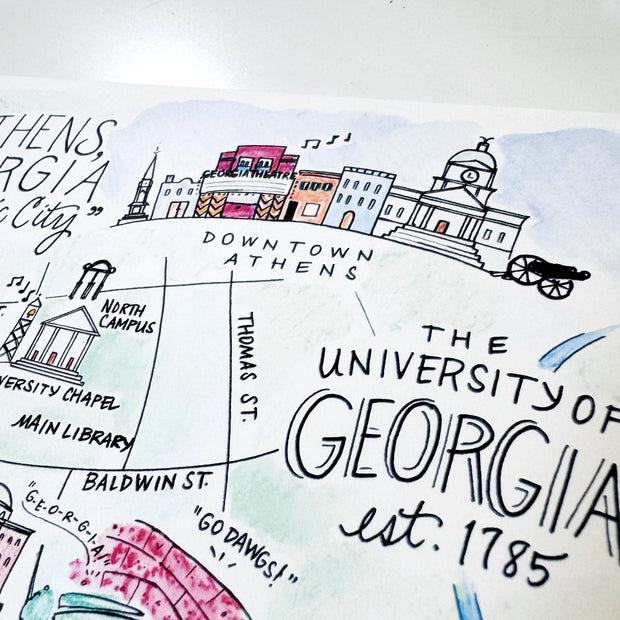 GEORGIA THEATRE
City"
DOWNTOWN
ATHENS
NORTH
CAMPUS
THOMAS ST.
CHAPEL
MAIN LIBRARY
BALDWIN ST.
"G-E-O-R-G-I-A!"
"GO DAWGS!"
THE
UNIVERSITY OF
GEORGIA
est. 1785